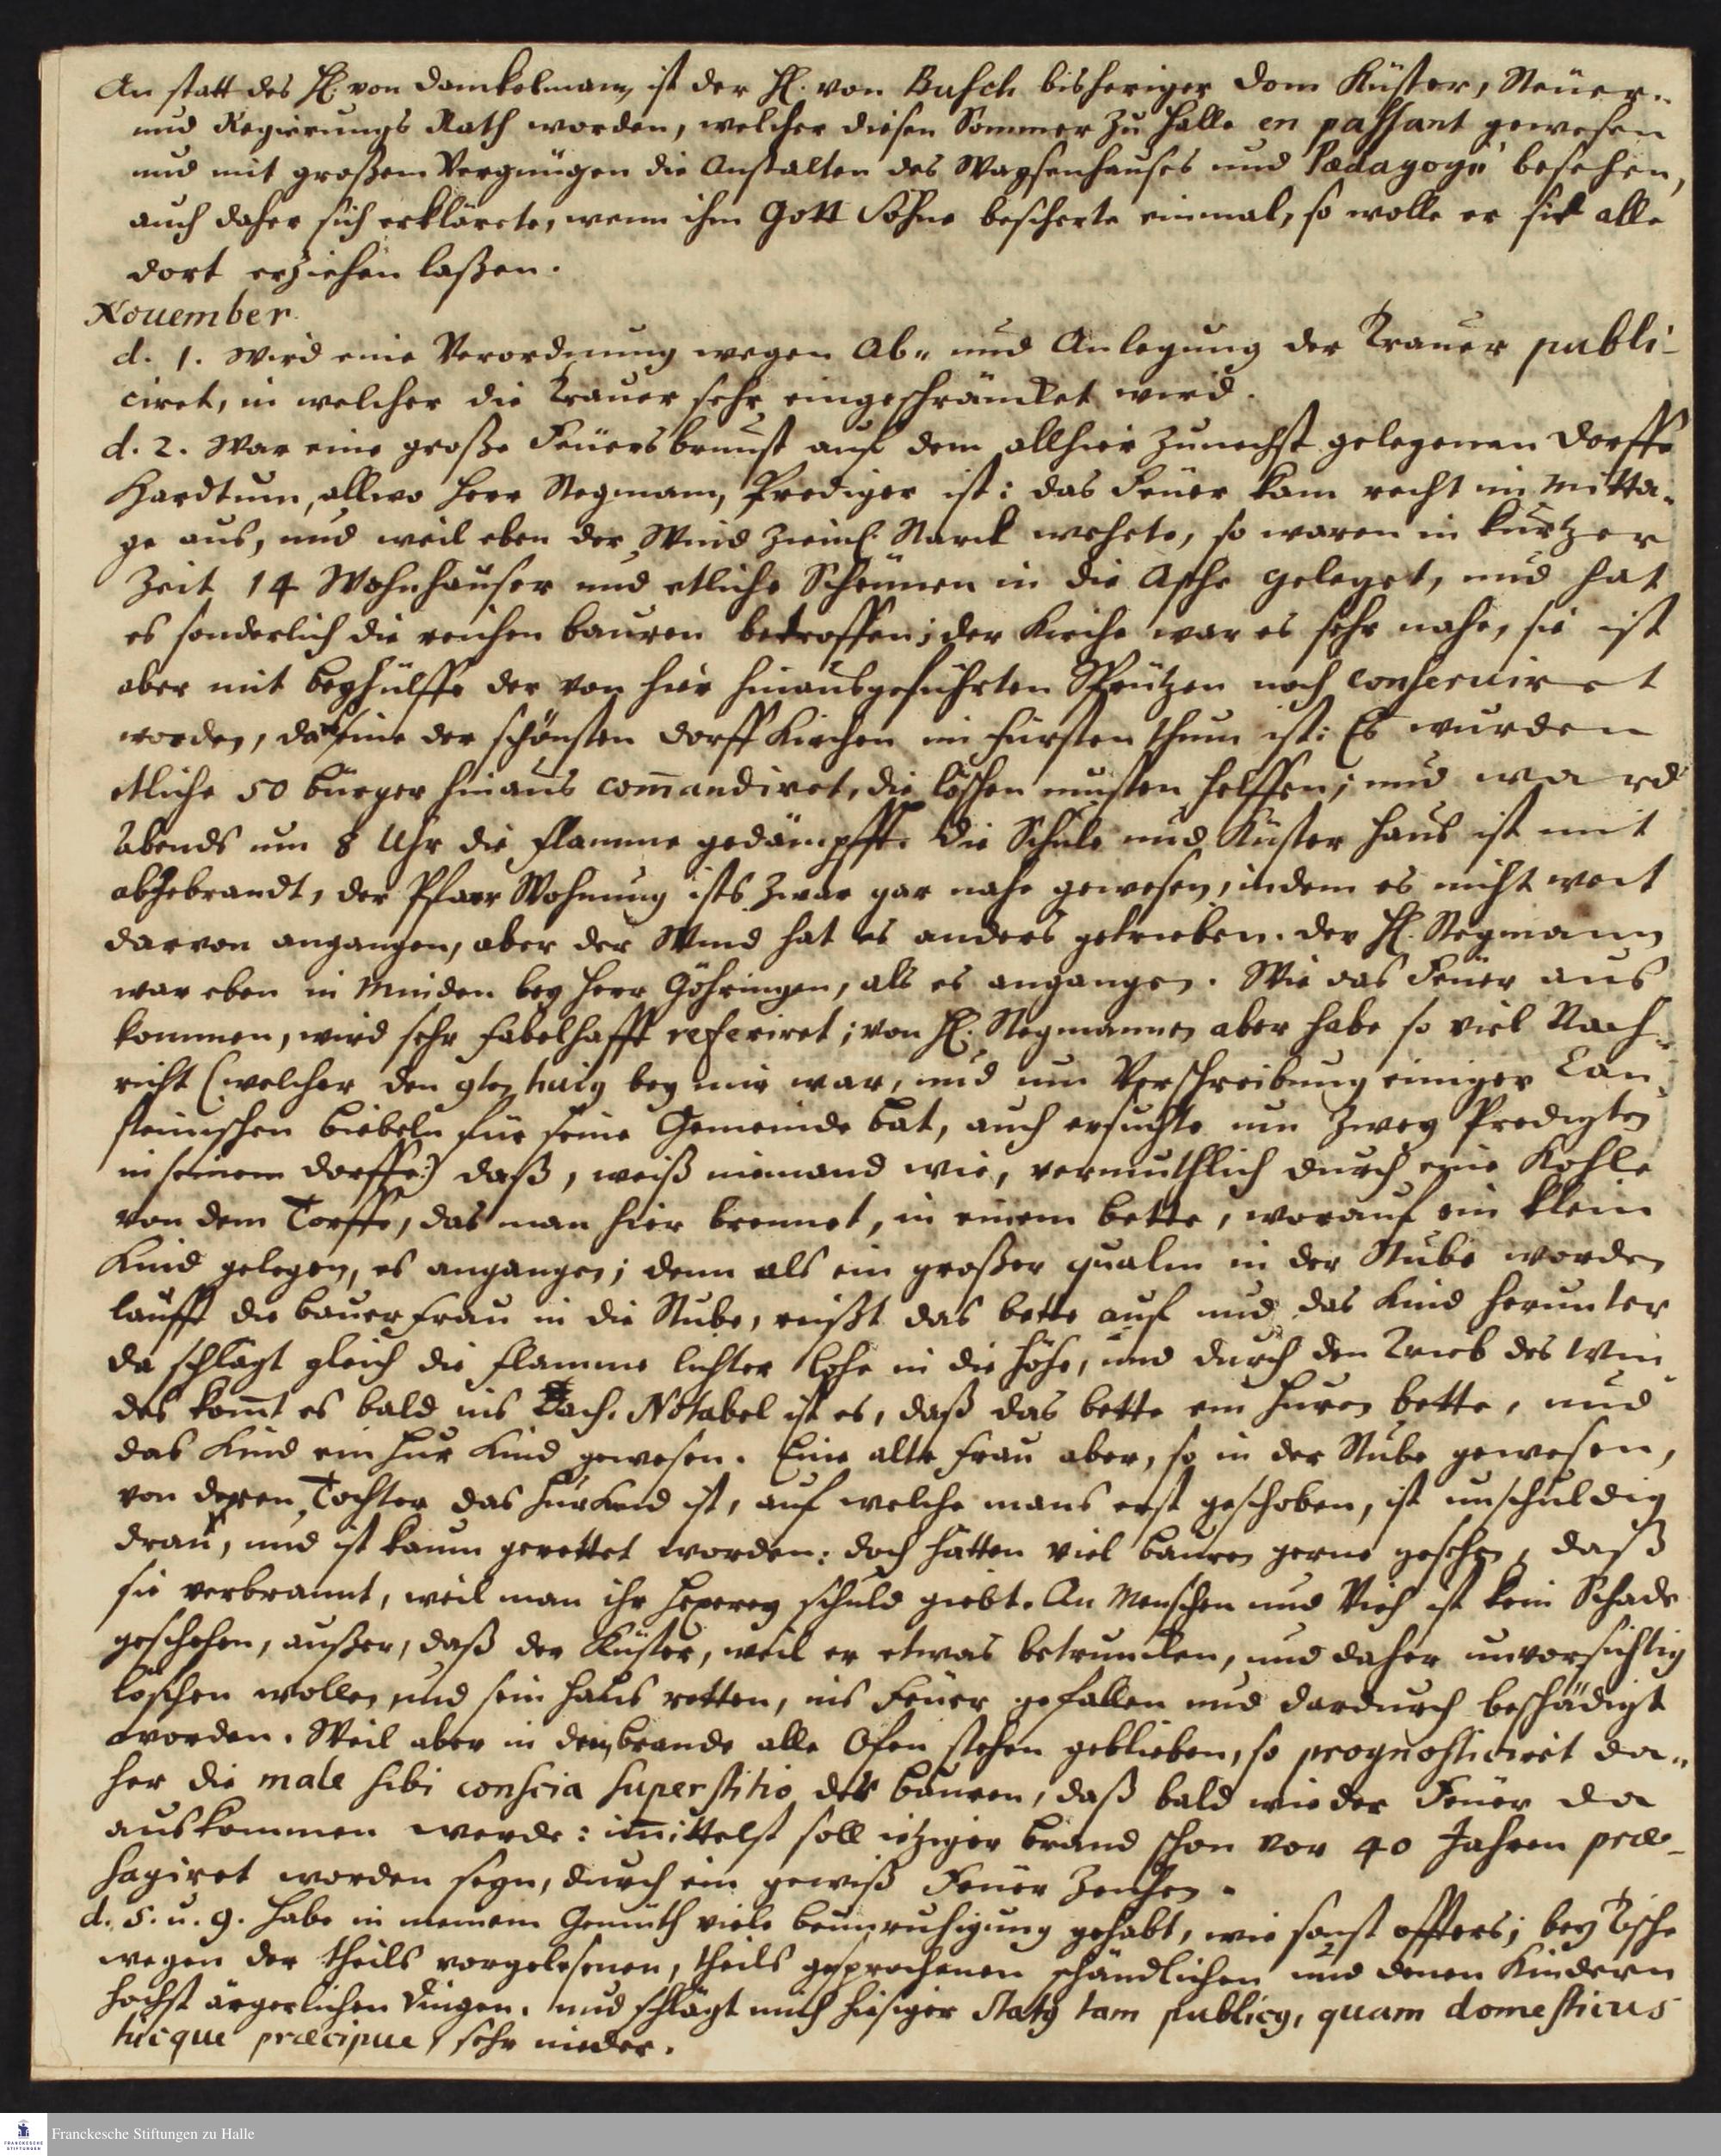 An statt des H. von Danckelmann, ist der H. von Busch bisheriger Dom Küster, Steüer-
und Regierungs Rath worden, welcher diesen Sommer zu Halle en passant gewesen
und mit großem Vergnügen die Anstalten des Waysenhauses und Pædagogii besehen,
auch daher sich erklärete, wenn ihm Gott Söhne bescherte einmal, so wolle er sie alle
dort erziehen laßen.
November
d. 1. Wird eine Verordnung wegen Ab- und Anlegung der Trauer publi-
ciret, in welcher die Trauer sehr eingeschräncket wird.
d. 2. War eine große Feüersbrunst auf dem allhier zunechst gelegenen Dorffe
Hardtum, allwo Herr Stegmann, Prediger ist: das Feüer kam recht im Mitta-
ge aus, und weil eben der Wind zieml. starck wehete, so waren in kurtzer
Zeit 14 Wohnhäuser und etliche Scheünen in die Asche geleget, und hat
es sonderlich die reichen bauren betroffen; der Kirche war es sehr nahe, sie ist
aber mit beyhülffe der von hier hinausgeführten Sprützen noch conserviret
worden, das eine der schönsten Dorff Kirchen im fürstenthum ist: Es wurden
etliche 50 bürger hinaus com̄andiret, die löschen musten helffen; und ward
Abends um 8 Uhr die flamme gedämpfft. Die Schule und Küster Haus ist mit
abgebrandt, der Pfarr Wohnung ists zwar gar nahe gewesen, indem es nicht weit
darvon angangen, aber der Wind hat es anders getrieben. der H. Stegmann
war eben in Minden bey Herr Göhringen, als es angangen. Wie das Feüer aus
kommen, wird sehr fabelhafft referiret; von H. Stegmannen aber habe so viel Nach-
richt (welcher den 9ten huig bey mir war, und um Verschreibung einiger Can-
steinischen Biebeln für seine Gemeinde bat, auch ersuchte um zwey Predigten
in seinem Dorffe:) daß, weiß niemand wie, vermuthlich durch eine Kohle
von dem Torffe, das man hier brennet, in einem bette, worauf ein klein
Kind gelegen, es angangen; denn als ein großer qualm in der Stube worden
läufft die bauerfrau in die Stube, reißt das bette auf und das Kind herunter
da schlägt gleich die flamme lichter Lohe in die Höhe, und durch den Trieb des Win
des kom̄t es bald ins Dach. Notabel ist es, daß das bette ein Huren bette, und
das Kind ein Hur Kind gewesen. Eine alte frau aber, so in der Stube gewesen,
von deren Tochter das Hurkind ist, auf welche mans erst geschoben, ist unschuldig
dran, und ist kaum gerettet worden: doch hätten viel bauren gerne gesehen, daß
sie verbrannt, weil man ihr Hexerey schuld giebt. An Menschen und Vieh ist kein Schade
geschehen, außer, daß der Küster, weil er etwas betruncken, und daher unvorsichtig
löschen wollen und sein Haus retten, ins Feüer gefallen und dardurch beschädigt
worden. Weil aber in dem brande alle Ofen stehen geblieben, so prognosticiret da-
her die male sibi conscia superstitio der bauren, daß bald wieder Feüer da
auskommen werde: im̄ittelst soll ietziger brand schon vor 40 Jahren præ-
sagiret worden seyn, durch ein gewiß Feüer Zeichen.
d. 5. u. 9. habe in meinem Gemüth viele beunruhigung gehabt, wie sonst offters; bey Tische
wegen der theils vorgelesenen, theils gesprochenen schändlichen und denen Kindern
höchst ärgerlichen Dingen. und schlägt mich hiesiger status tam publicus, quam domesticus
hicque præcipue, sehr nieder.
Franckesche Stiftungen zu Halle